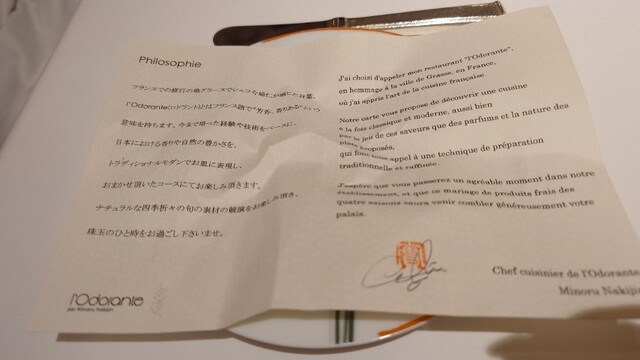 Philosophie
フランスでの修行の地グラースでシェフな
l'Odorante(ロドラント)とはフランス語で"芳香、香りある"という
意味を持ちます。今まで培った経験や技術をベースに、
日本における香りや自然の豊かさを、
トラディショナルモダンでお皿に表現し、
おまかせ頂いたコースにてお楽しみ頂きます。
ナチュラルな四季折々の旬の素材の競演をお楽しみ頂き、
珠玉のひと時をお過ごし下さいませ。
l'Odorante
par Minoru Nakijin
J'ai choisi d'appeler mon restaurant "l'Odorante",
en hommage à la ville de Grasse, en France,
où j'ai appris l'art de la cuisine française.
Notre carte vous propose de découvrir une cuisine
à la fois classique et moderne, aussi bien
par le jeu de ces saveurs que des parfums et la nature des
plats proposés,
qui font tous appel à une technique de préparation
traditionnelle et raffinée.
J'espère que vous passerez un agréable moment dans notre
établissement, et que ce mariage de produits frais des
quatre saisons saura venir combler généreusement votre
palais.
Chef cuisinier de l'Odorante
Minoru Nakijin